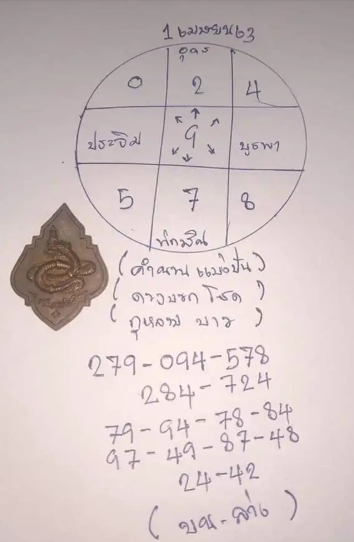 1 เมษายน 63
อุดร
0 2 4
ประจิม 9 บูรพา
5 7 8
ทักษิณ
(คำนวน แม่งเป๊น)
(ดวงบอก โชค)
(กุหลาบ ขาว)
279-094-578
284-724
79-94-78-84
97-49-87-48
24-42
(บน-ล่าง)